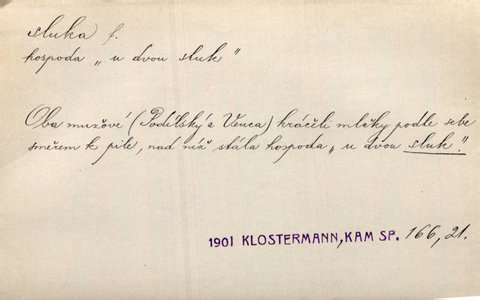 sluka f.
hospoda „u dvou sluk"
Oba mužové (Podělský a Venca) kráčeli mlčky podle sebe
směrem k pile, nad níž stála hospoda „u dvou sluk".
1901 KLOSTERMANN, KAM SP. 166, 21.